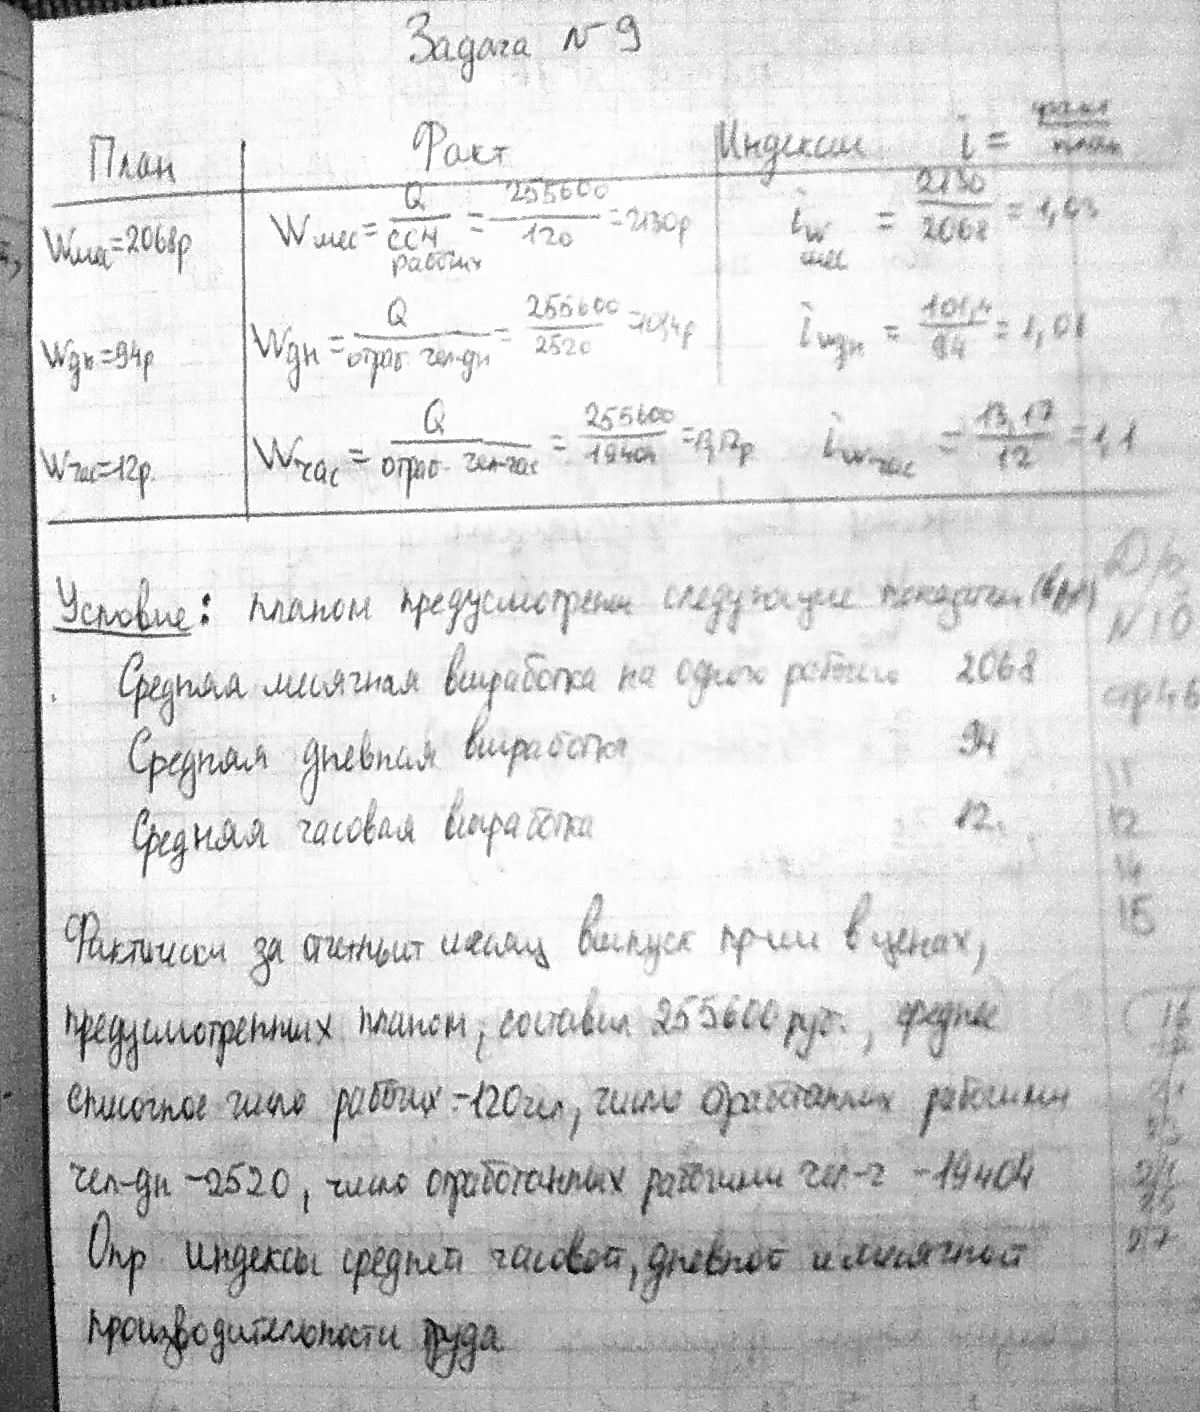 Задача №9
План Факт Индексы i = факт/план
Wмес=2068р Wмес = Q/ССЧ рабочих = 255600/120 = 2130р i w мес = 2130/2068 = 1,03
Wдн=94р Wдн = Q/отраб. чел-дн = 255600/2520 = 101,4р i wдн = 101,4/94 = 1,08
Wчас=12р. Wчас = Q/отраб. чел-час = 255600/19404 = 13,17р i w час = 13,17/12 = 1,1
Условие: планом предусмотрены следующие показатели
Средняя месячная выработка на одного рабочего 2068
Средняя дневная выработка 94
Средняя часовая выработка 12.
Фактически за отчетный месяц выпуск пр-ции в ценах,
предусмотренных планом, составил 255600 руб., среднее
списочное число рабочих -120чел, число отработанных рабочими
чел-дн -2520, число отработанных рабочими чел-ч -19404
Опр индексы средней часовой, дневной и месячной
производительности труда
Д/з
№10
11
12
14
15